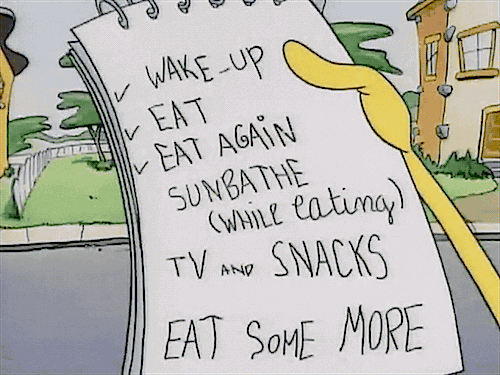 ✓ WAKE-UP
✓ EAT
✓ EAT AGAIN
SUNBATHE
(WHILE eating)
TV AND SNACKS
EAT SOME MORE